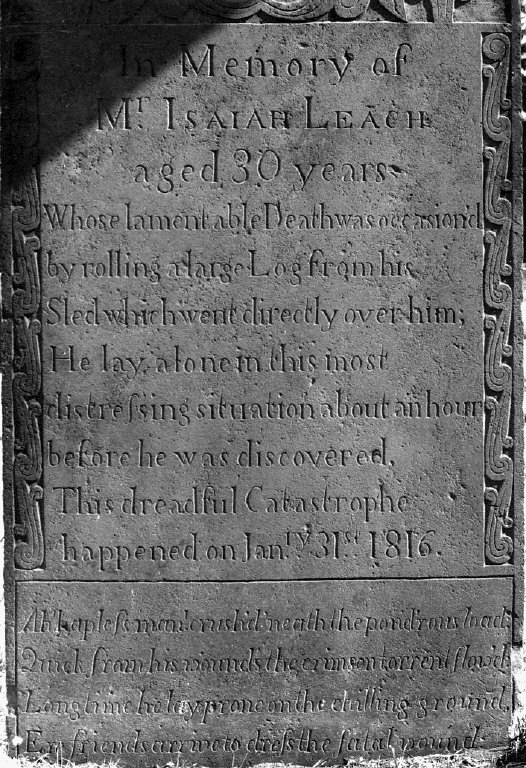 In Memory of
Mr Isaiah Leach
aged 30 years
Whose lamentable Death was occasion'd
by rolling a large Log from his
Sled which went directly over him;
He lay alone in this most
distreſsing situation about an hour
before he was discovered,
This dreadful Catastrophe
happened on Janry 31st 1816.
Ah hapleſs man! crush'd neath the pond'rous load;
Quick from his wounds the crimson torrent flow'd
Long time he lay prone on the chilling ground,
Er friends arrive to dreſs the fatal wound